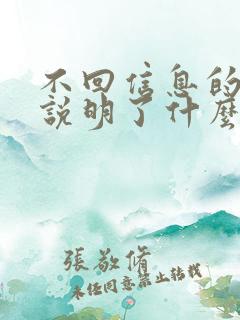 不回信息的
說明了什麼
張敬脩
未任同意禁止转载